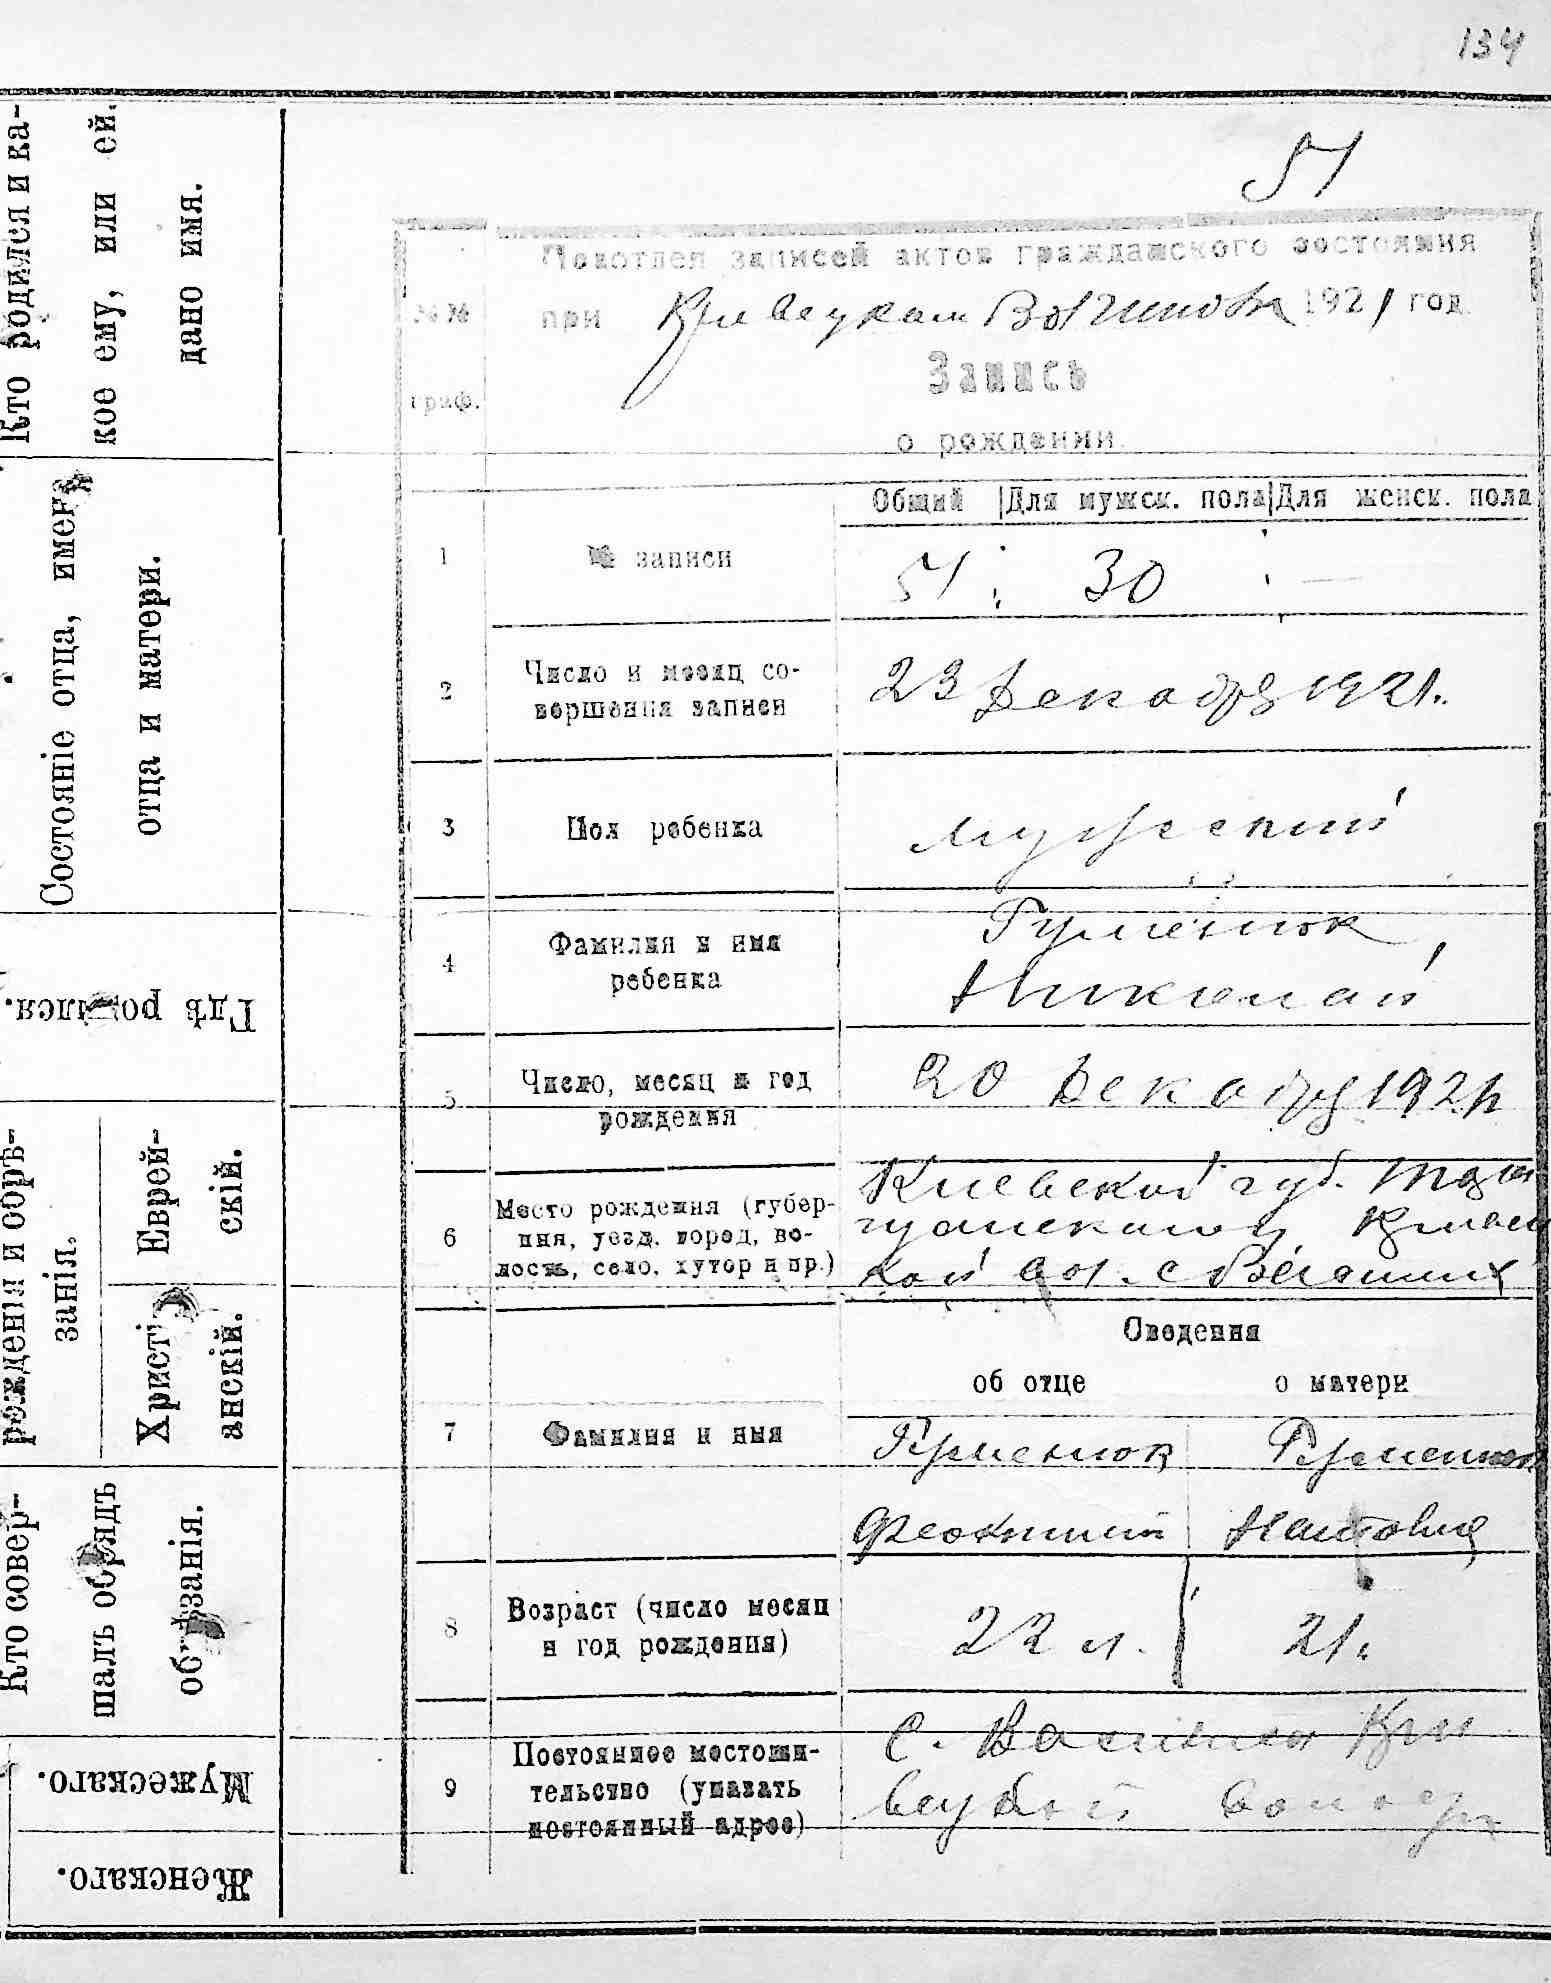 134
Кто родился и ка-
кое ему, или ей
дано имя.
Состояніе отца, имена
отца и матери.
Гдѣ родился.
рожденія и обрѣ-
занія.
Еврей-
скій.
Христі-
анскій.
Кто совер-
шалъ обрядъ
обрѣзанія.
Мужескаго.
Женскаго.
51
Подотдел записей актов гражданского состояния
при 1921 год.
№№
граф.
Запись
о рождении.
Общий Для мужск. пола Для женск. пола
1 № записи 51 30 —
2 Число и месяц со-
вершения записи
23 Декабря 1921.
3 Пол ребенка мужеский
4 Фамилия и имя
ребенка
Гуменюк
Николай
5 Число, месяц и год
рождения
20 Декабря 1921
6 Место рождения (губер-
ния, уезд, город, во-
лость, село, хутор и пр.)
Киевской губ.
вол. с
Сведения
об отце о матери
7 Фамилия и имя
Гуменюк Гуменюк
Феоктист
8 Возраст (число месяц
и год рождения)
22 л. 21
9 Постоянное местожи-
тельство (указать
постоянный адрес)
С.